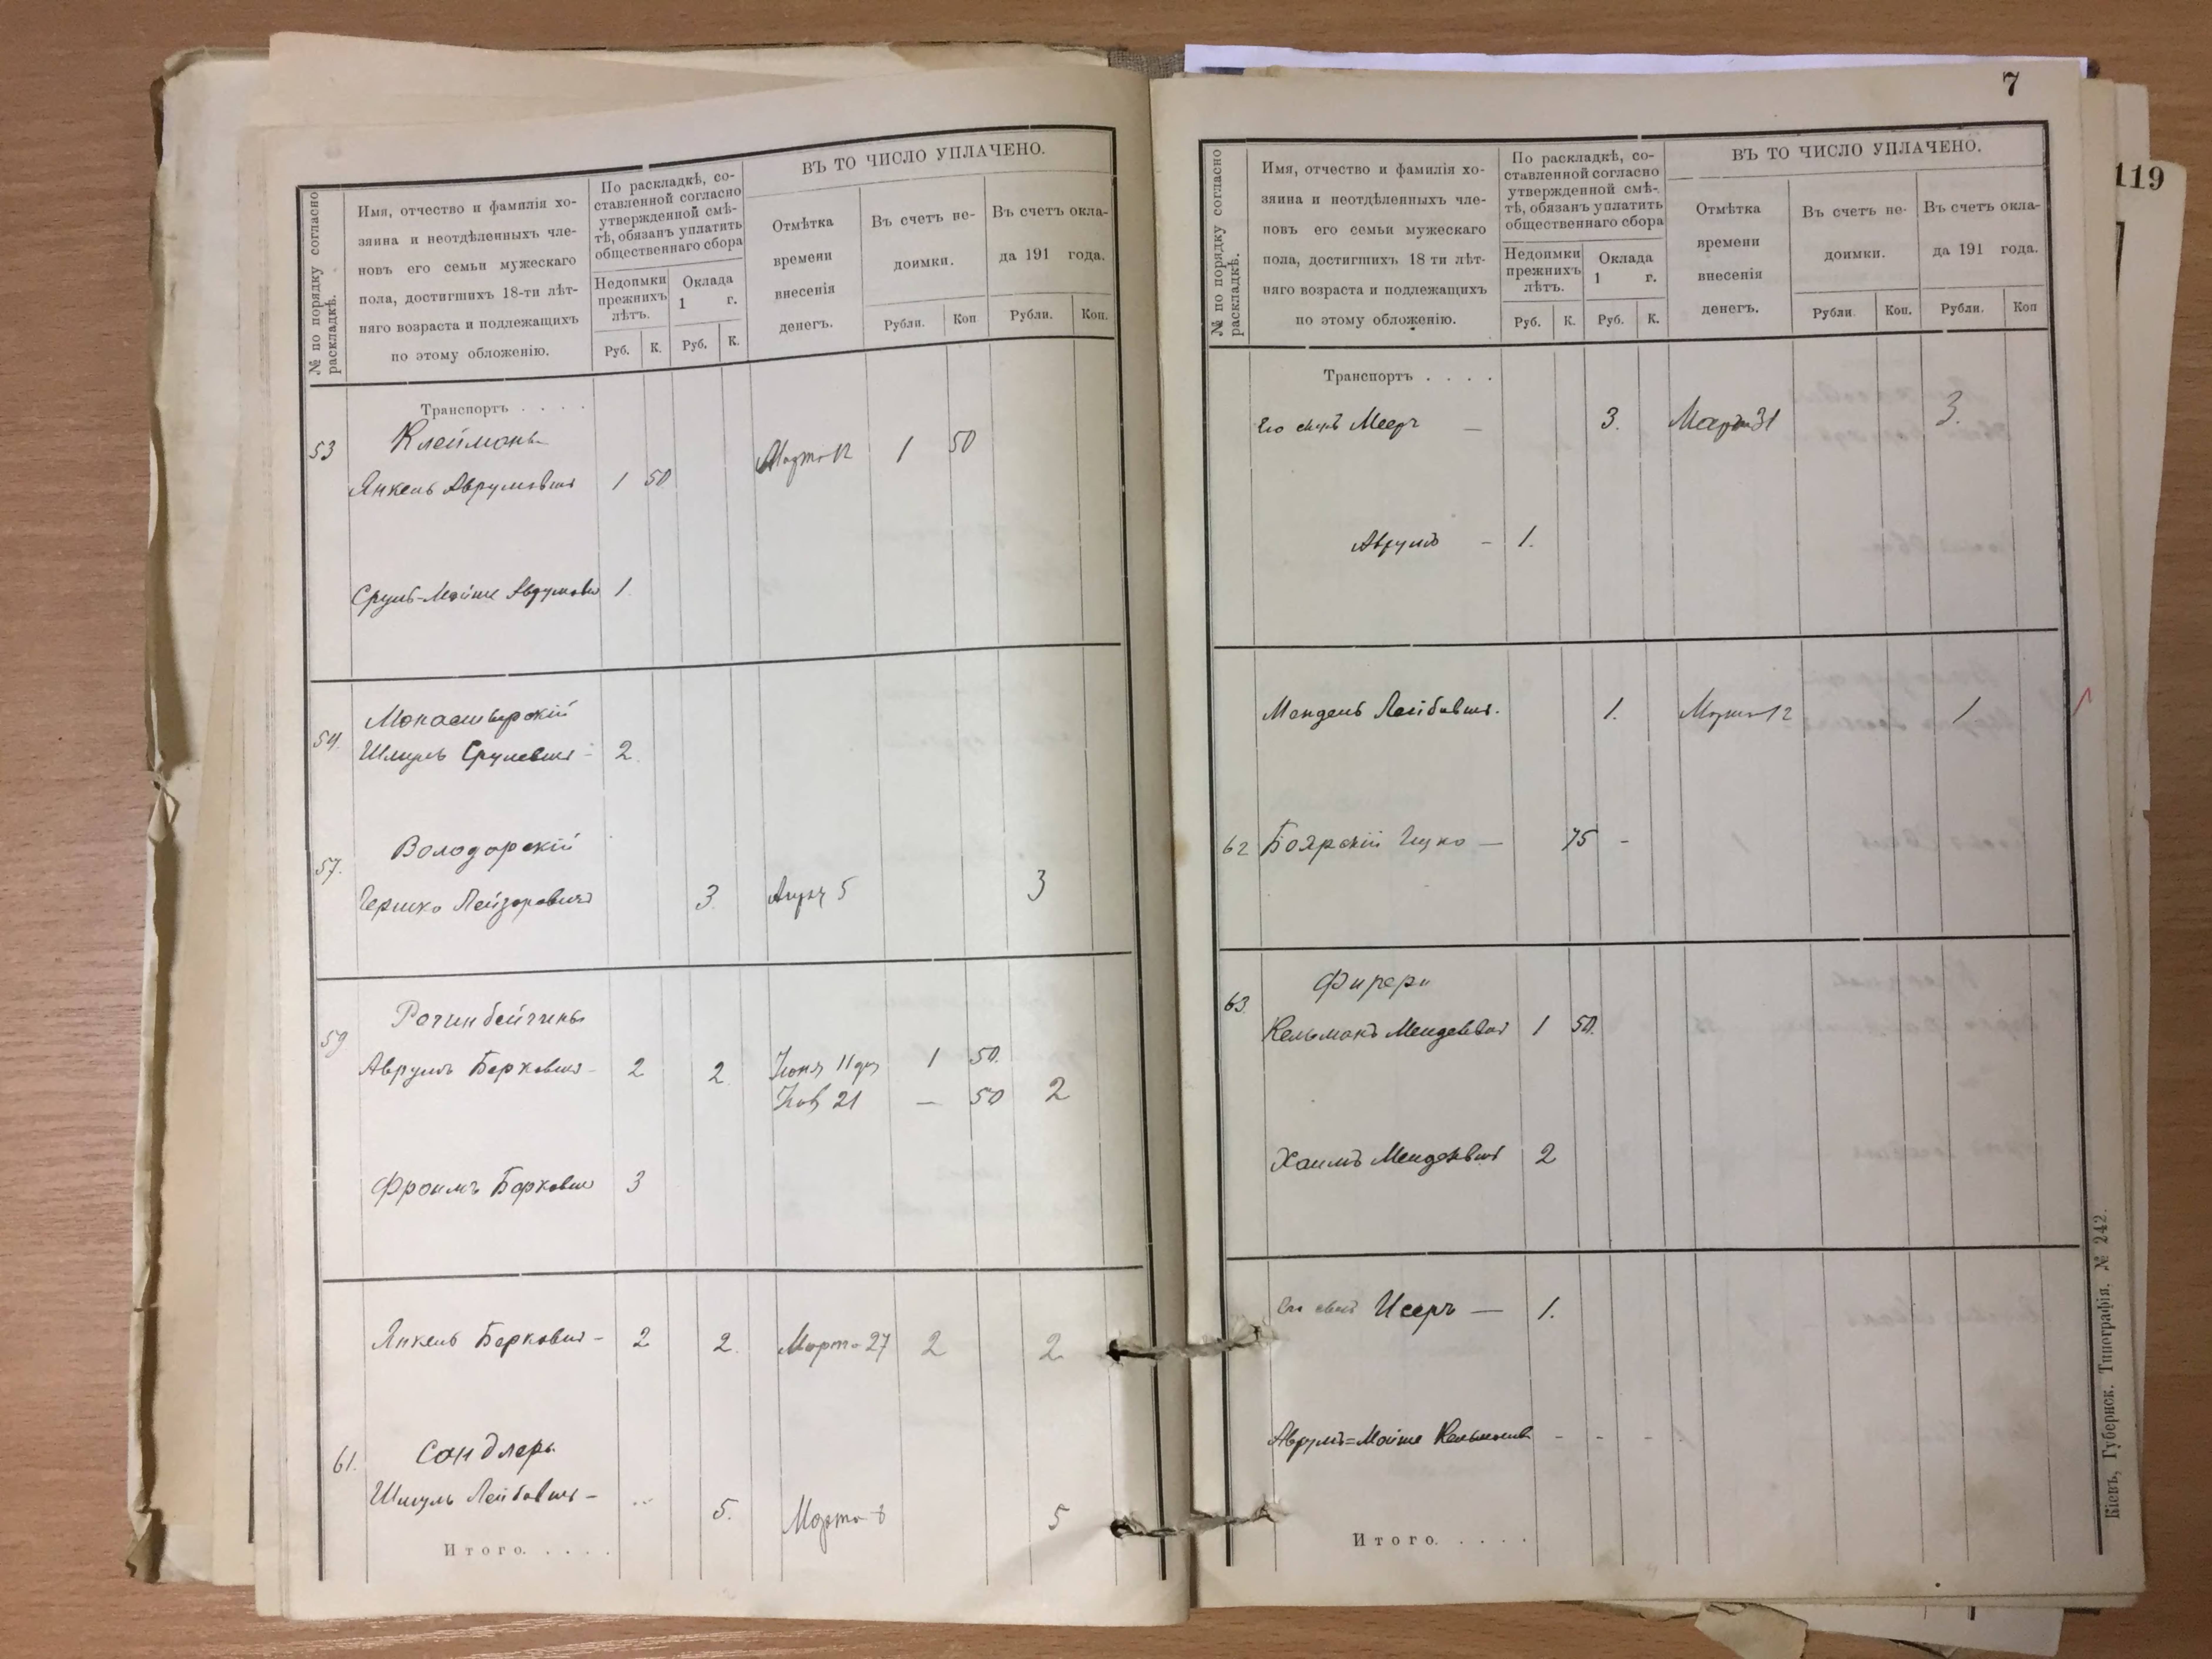 № по порядку согласно раскладкѣ.
Имя, отчество и фамилія хо-
зяина и неотдѣленныхъ чле-
новъ его семьи мужескаго
пола, достигшихъ 18-ти лѣт-
няго возраста и подлежащихъ
по этому обложенію.
По раскладкѣ, со-
ставленной согласно
утвержденной смѣ-
тѣ, обязанъ уплатить
общественнаго сбора
Недоимки
прежнихъ
лѣтъ.
Оклада
1 г.
Руб. К. Руб. К.
ВЪ ТО ЧИСЛО УПЛАЧЕНО.
Отмѣтка
времени
внесенія
денегъ.
Въ счетъ не-
доимки.
Въ счетъ окла-
да 191 года.
Рубли. Коп Рубли. Коп.
Транспортъ . . . .
53 Клейманъ
Янкель Аврумовичъ 1 50 Марта 12 1 50
Сруль-Мойше Аврумович 1.
54. Монастырскій
Шмуль Срулевичъ - 2.
57. Володарскій
Гершко Лейзоровичъ 3. Апрл 5 3
59
Аврумъ Берковичъ - 2 2. Юня 11 дня 1 50.
Нов 21 — 50 2
Фроимъ Беркович 3
Янкель Беркович - 2 2. Марта 27 2 2
61. Сандлеръ
Шмуль Лейбович - .. 5. Марта 8 5
Итого. . . . .
7
№ по порядку согласно раскладкѣ.
Имя, отчество и фамилія хо-
зяина и неотдѣленныхъ чле-
новъ его семьи мужескаго
пола, достигшихъ 18 ти лѣт-
няго возраста и подлежащихъ
по этому обложенію.
По раскладкѣ, со-
ставленной согласно
утвержденной смѣ-
тѣ, обязанъ уплатить
общественнаго сбора
Недоимки
прежнихъ
лѣтъ.
Оклада
1 г.
Руб. К. Руб. К.
ВЪ ТО ЧИСЛО УПЛАЧЕНО.
Отмѣтка
времени
внесенія
денегъ.
Въ счетъ не-
доимки.
Въ счетъ окла-
да 191 года.
Рубли. Коп. Рубли. Коп
Транспортъ . . . .
Его сынъ Мееръ — 3. Марта 31 3.
Аврумъ - 1.
Мендель Лейбович. 1. Марта 12 1
62 Боярскій Ицко — 75 -
63.
Кельманъ Менделевич 1 50.
Хаимъ Менделевич 2
Его сынъ Исеръ — 1.
Аврумъ=Мойше Кельманов - - -
Итого. . . . .
Кіевъ, Губернск. Типографія. № 242.
119